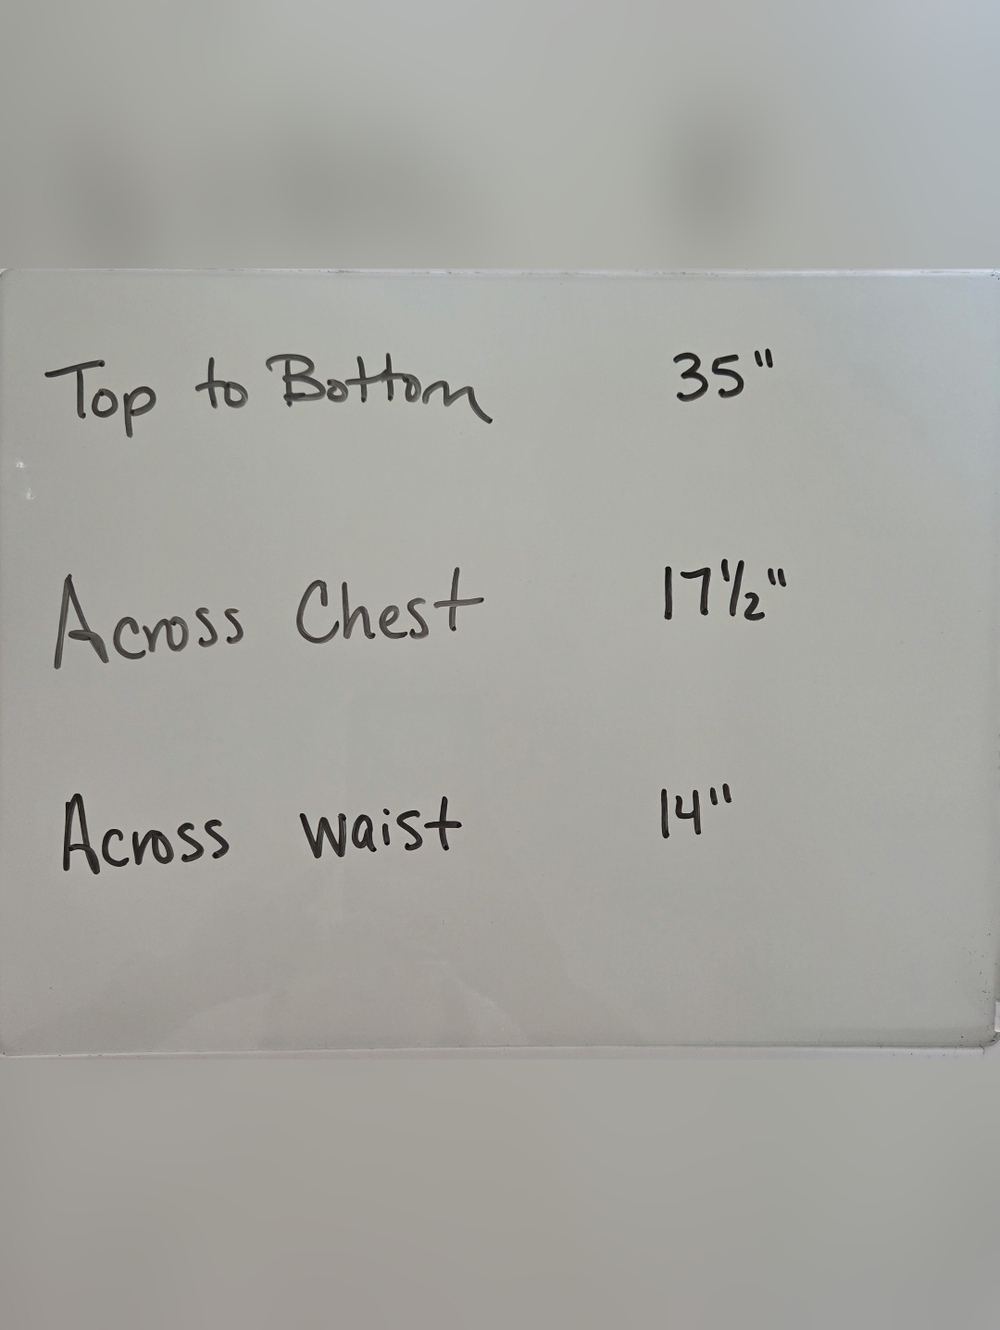 Top to Bottom 35"
Across Chest 17 1/2"
Across waist 14"